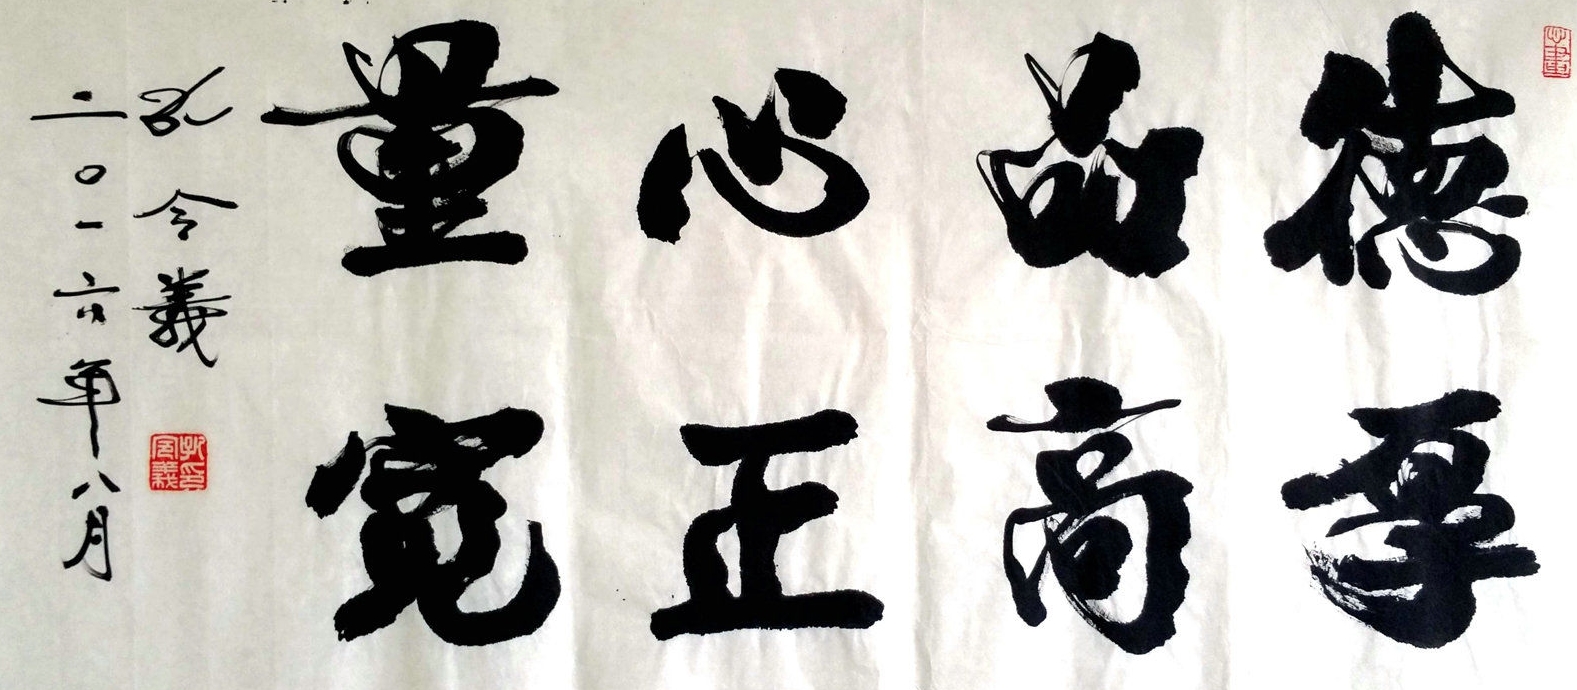 德厚
品高
心正
量宽
孔令義
二〇一六年八月
孔令義印